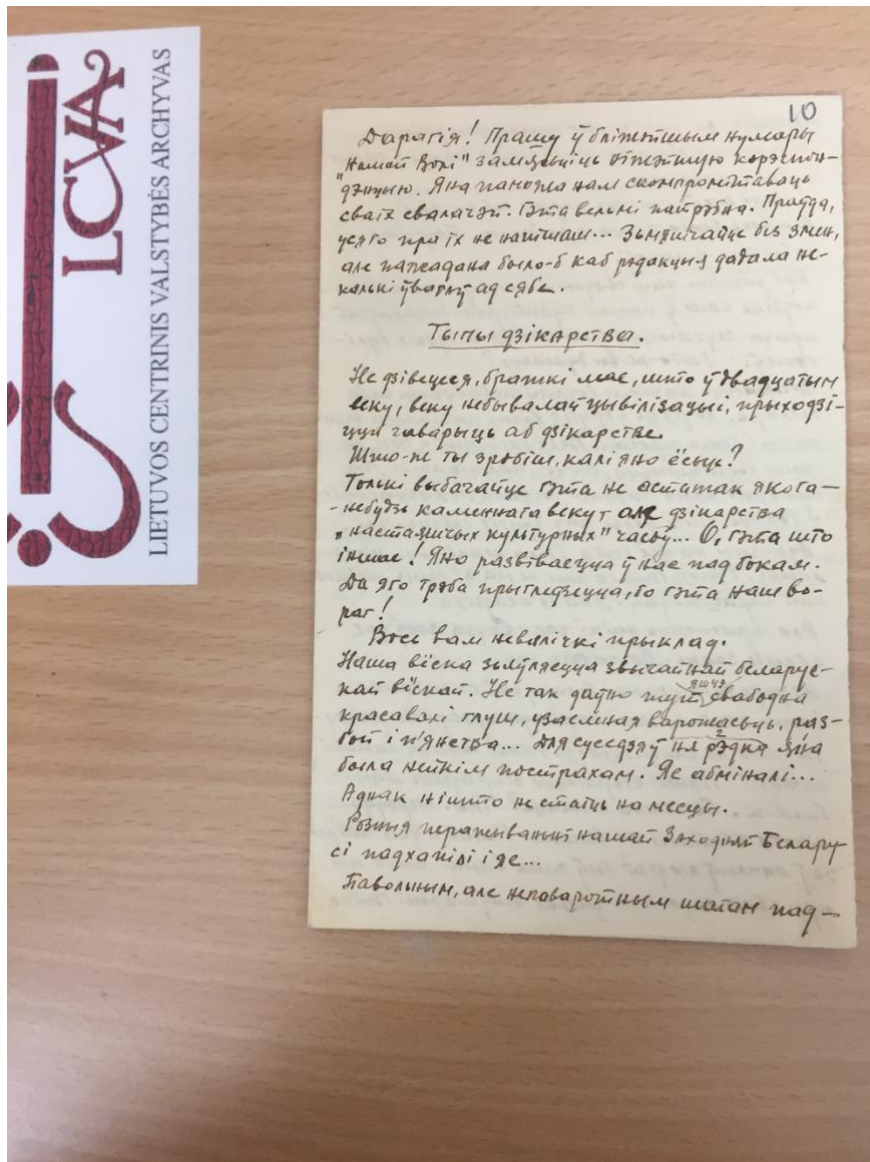 LCVA
LIETUVOS CENTRINIS VALSTYBĖS ARCHYVAS
10
Дарагія! Прашу ў бліжэйшым нумары
"Нашай Волі" замясьціць ніжэйшую карэспон-
дэнцыю. Яна паможа нам скомпромітаваць
сваіх свалачэй. Гэта вельмі патрэбна. Праўда,
усяго пра іх не напішаш... Зьмяшчайце без змен,
але пажадана было-б каб рэдакцыя дадала не-
калькі ўвагаў ад сябе.
Тыпы дзікарства.
Не дзівецеся, браткі мае, што ў двадцатым
веку, веку небывалай цывілізацыі, прыходзі-
цца гаварыць аб дзікарстве.
Што-ж ты зробіш, калі яно ёсьць?
Толькі выбачайце гэта не астатак якога-
-небудзь каменнага веку але дзікарства
"настаяшчых культурных" часоў... О, гэта што
іншае! Яно развіваецца ў нас пад бокам.
Да яго трэба прыгледзецца, бо гэта наш во-
раг!
Вось вам невялічкі прыклад.
Наша вёска зьяўляецца звычайнай беларус-
кай вёскай. Не так даўно тут яшчэ свабодна
красавалі глуш, узаемная варожасьць, раз-
бой і п'янства... Для суседзяў ня рэдка яна
была нейкім пострахам. Яе абміналі...
Аднак нішто не стаіць на месцы.
Розныя перажываньні нашай Заходняй Белару
сі падхапілі і яе...
Павольным, але непаваротным шагам пад-